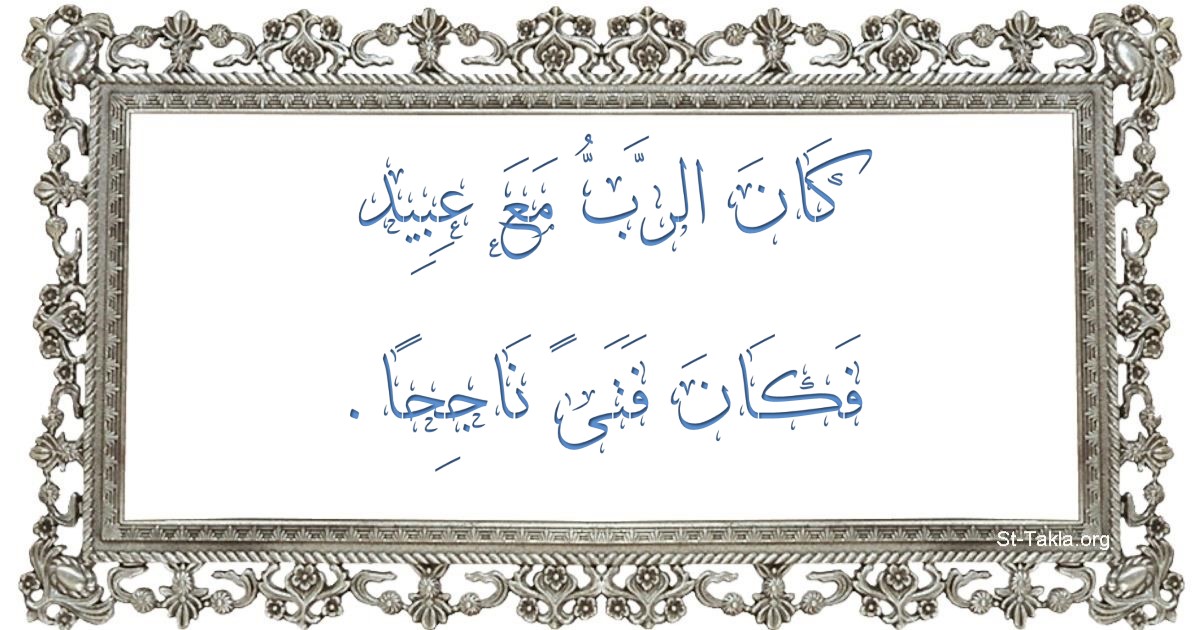 كَانَ الرَّبُّ مَعَ عِبِيِد
فَكَانَ فَتَىً نَاجِحًا .
St-Takla.org